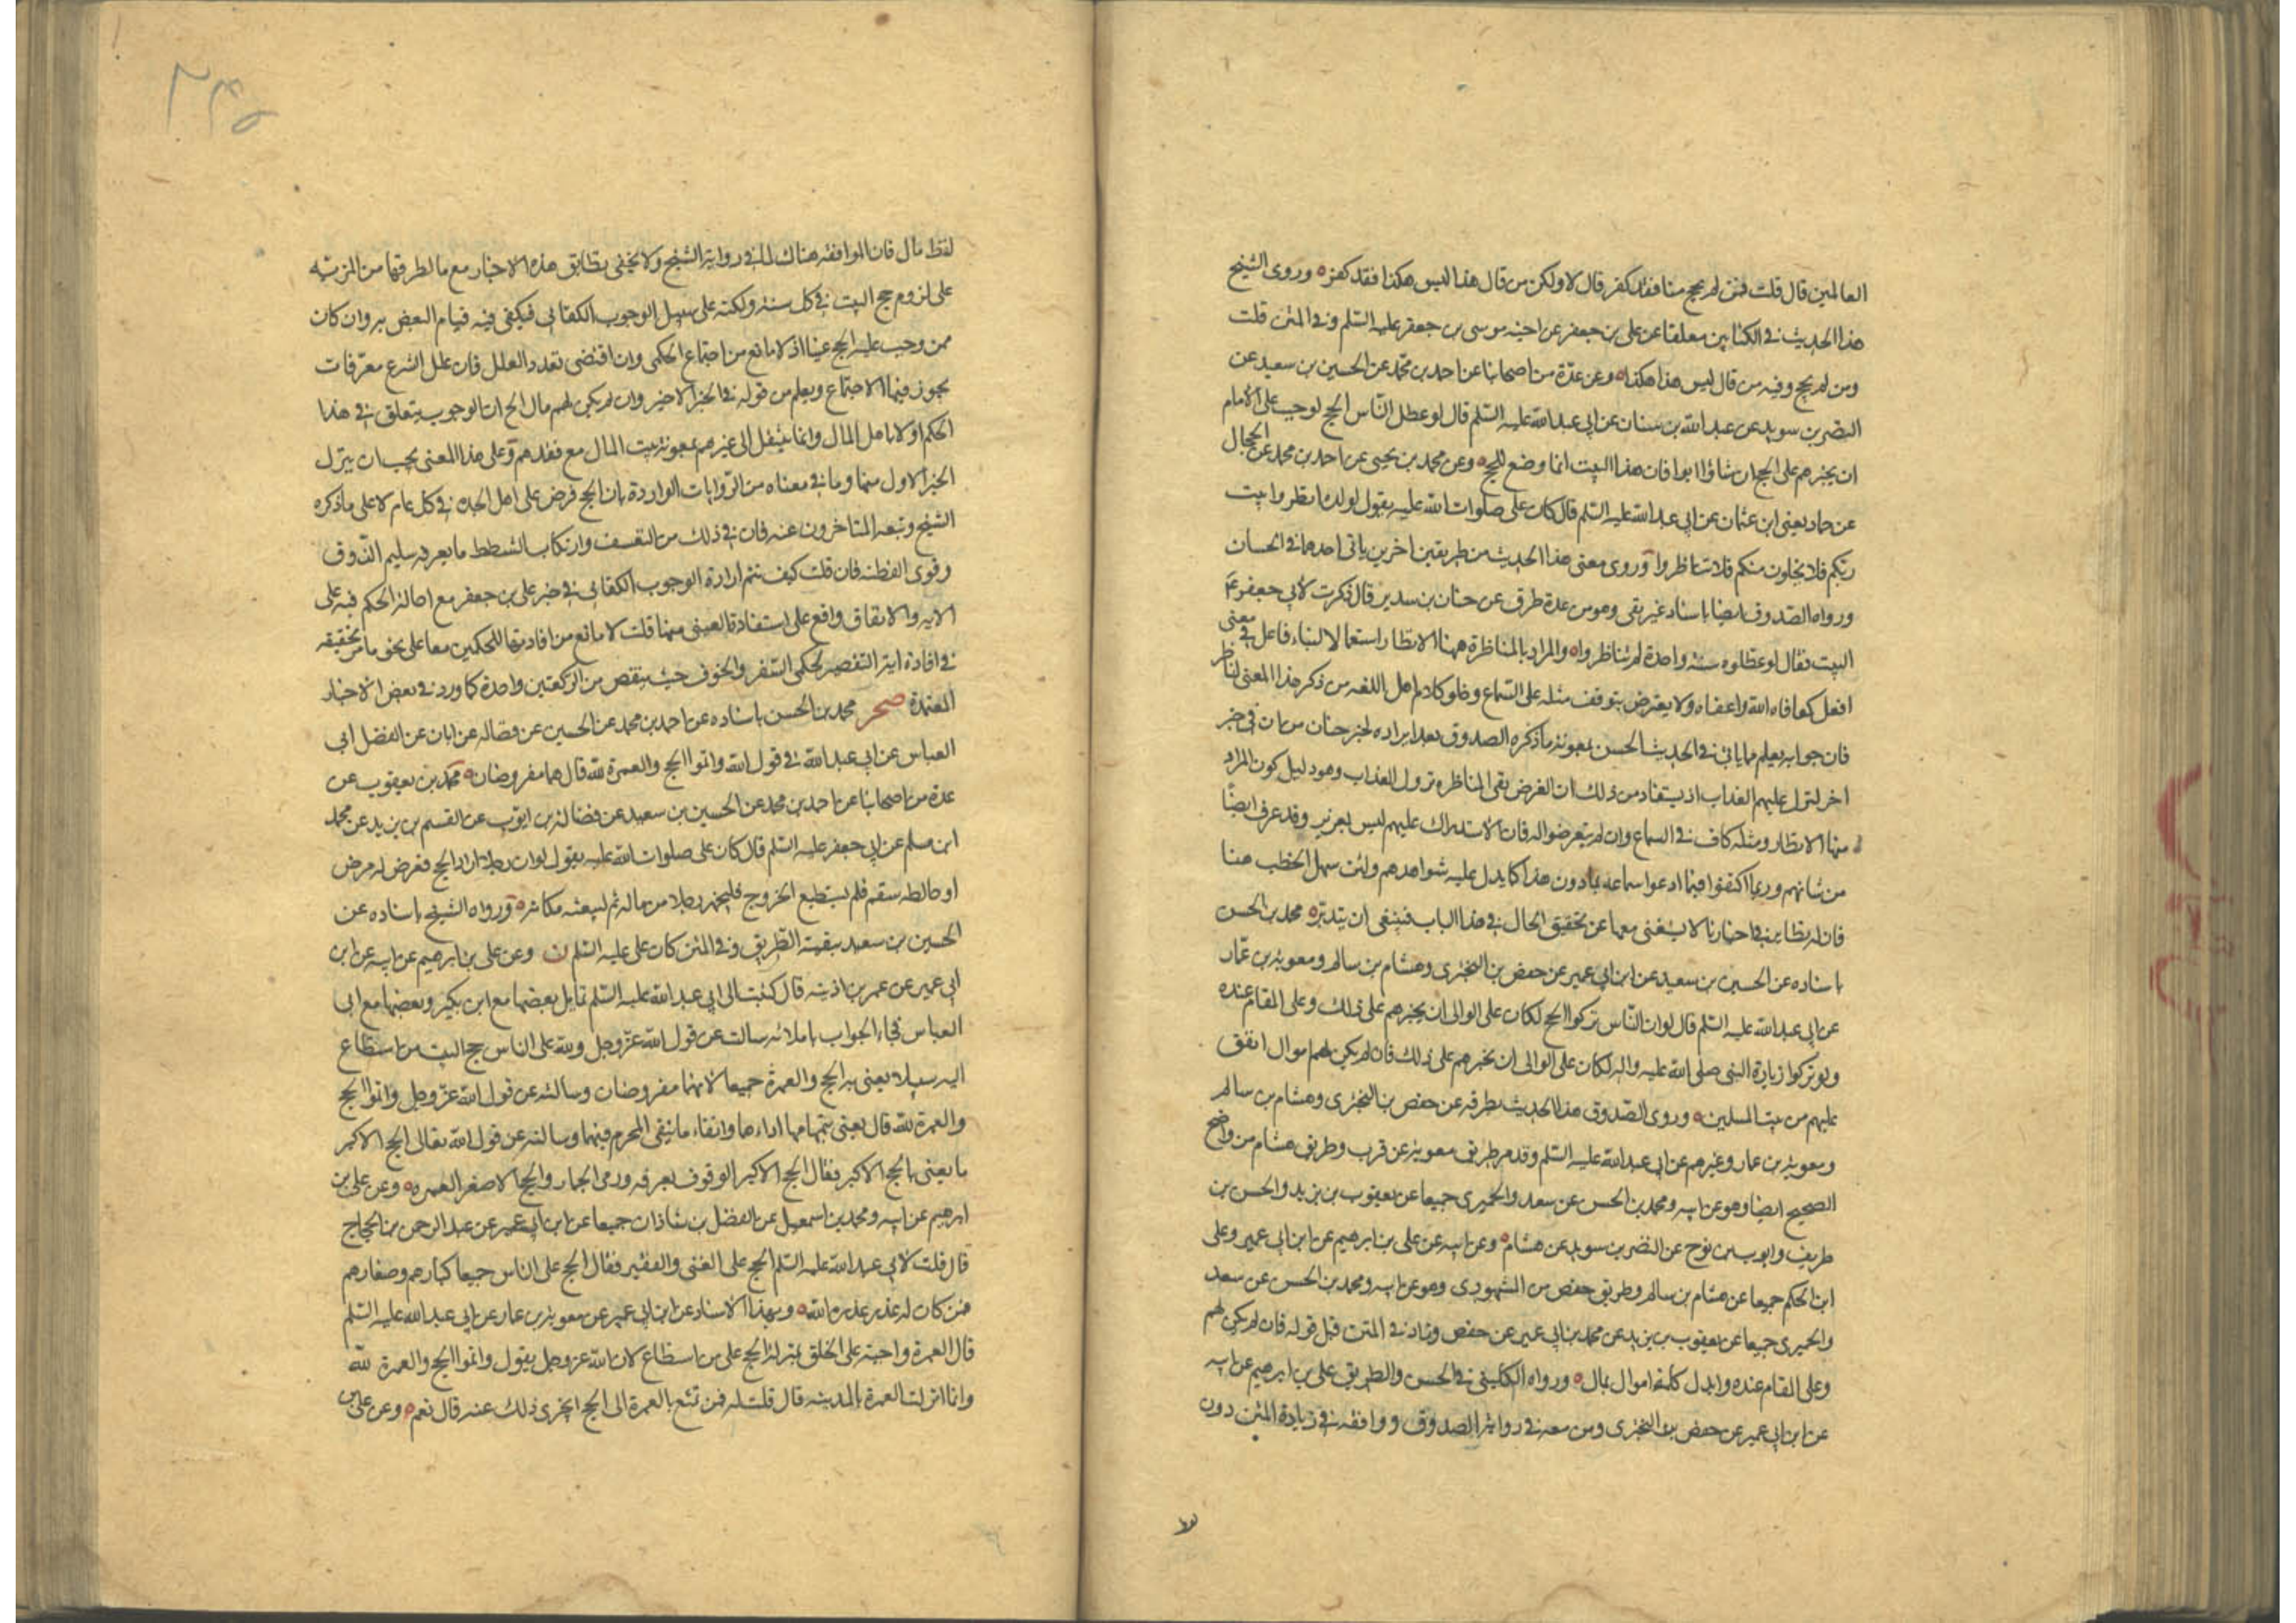 العالمين قال قلت فمن لم يحج منا فقد كفر قال لا ولكن من قال هذا ليس هكذا فقد كفر ه وروى الشيخ
هذا الحديث في الكتابين معلقا عن علي بن جعفر عن اخيه موسى بن جعفر عليه السلم وفي المتن قلت
ومن لم يحج وفيه من قال ليس هذا هكذا ه وعن عدة من اصحابنا عن احمد بن محمد عن الحسين بن سعيد عن
النضر بن سويد عن عبد الله بن سنان عن ابي عبد الله عليه السلم قال لو عطل الناس الحج لوجب على الامام
ان يجبرهم على الحج ان شاؤا ابوا فان هذا البيت انما وضع للحج ه وعن محمد بن يحيى عن احمد بن محمد عن الحجال
عن حماد يعني ابن عثمان عن ابي عبد الله عليه السلم قال كان علي صلوات الله عليه يقول لولده انظروا بيت
ربكم فلا يخلون منكم فلا تناظروا وروى معنى هذا الحديث من طريقين اخرين ياتي احدهما في الحسان
ورواه الصدوق ايضا باسناد غير نقي وهو من عدة طرق عن حنان بن سدير قال ذكرت لابي جعفر ع
البيت فقال لو عطلوه سنة واحدة لم يناظروا ه والمراد بالمناظرة ههنا الانظار استعمالا لبناء فاعل في معنى
افعل كعافاه الله واعفاه ولا يعترض بتوقف مثله على السماع وخلو كلام اهل اللغه من ذكر هذا المعنى لناظر
فان جوابه يعلم مما ياتي في الحديث الحسن بمعونة ما ذكره الصدوق بعد ايراده لخبر حنان من ان في خبر
اخر لنزل عليهم العذاب اذ يستفاد من ذلك ان الغرض بنفي المناظره نزول العذاب وهو دليل كون المراد
منها الانظار ومثله كاف في السماع وان لم يتعرضوا له فان الاستدراك عليهم ليس بعزيز وقد عرف ايضا
من شانهم وربما اكتفوا فيما ادعوا سماعه بما دون هذا كما يدل عليه شواهدهم ولئن سهل الخطب هنا
فان له نظاير في اخبارنا لا يستغنى معها عن تحقيق الحال في هذا الباب فينبغي ان يتدبر ه محمد بن الحسن
باسناده عن الحسين بن سعيد عن ابن ابي عمير عن حفص بن البختري وهشام بن سالم ومعوية بن عمار
عن ابي عبد الله عليه السلم قال لو ان الناس تركوا الحج لكان على الوالي ان يجبرهم على ذلك وعلى المقام عنده
ولو تركوا زيارة النبي صلى الله عليه واله لكان على الوالي ان يجبرهم على ذلك فان لم يكن لهم اموال انفق
عليهم من بيت المسلمين ه وروى الصدوق هذا الحديث بطرقه عن حفص بن البختري وهشام بن سالم
ومعوية بن عمار وغيرهم عن ابي عبد الله عليه السلم وقد مر طريق معوية عن قرب وطريق هشام من واضح
الصحيح ايضا وهو عن ابيه ومحمد بن الحسن عن سعد والحميري جميعا عن يعقوب بن يزيد والحسن بن
ظريف وايوب بن نوح عن النضر بن سويد عن هشام ه وعن ابيه عن علي بن ابرهيم عن ابن ابي عمير وعلي
ابن الحكم جميعا عن هشام بن سالم وطريق حفص من المشهوري وهو عن ابيه ومحمد بن الحسن عن سعد
والحميري جميعا عن يعقوب بن يزيد عن محمد بن ابي عمير عن حفص وزاد في المتن قبل قوله فان لم يكن لهم
وعلى المقام عنده وابدل كلمة اموال بمال ه ورواه الكليني في الحسن والطريق علي بن ابرهيم عن ابيه
عن ابن ابي عمير عن حفص بن البختري ومن معه في رواية الصدوق ووافقه في زيادة المتن دون
لفظ مال فان الموافقه هناك لما في رواية الشيخ ولا يخفى تطابق هذه الاخبار مع ما لطرقها من المزية
على لزوم حج البيت في كل سنة ولكنه على سبيل الوجوب الكفائي فيكفي فيه قيام البعض به وان كان
ممن وجب عليه الحج عينا اذ لا مانع من اجتماع الحكمين وان اقتضى تعدد العلل فان علل الشرع معرفات
يجوز فيها الاجتماع ويعلم من قوله في الخبر الاخير وان لم يكن لهم مال الخ ان الوجوب يتعلق في هذا
الحكم اولا باهل المال وانما ينتقل الى غيرهم بمعونة بيت المال مع فقدهم وعلى هذا المعنى يجب ان ينزل
الخبر الاول منها وما في معناه من الروايات الواردة بان الحج فرض على اهل الجدة في كل عام لا على ما ذكره
الشيخ وتبعه المتاخرون عنه فان في ذلك من التعسف وارتكاب الشطط ما يعرفه سليم الذوق
وقوي الفطنه فان قلت كيف تتم ارادة الوجوب الكفائي في خبر علي بن جعفر مع احالة الحكم فيه على
الايه والاتفاق واقع على استفادة العيني منها قلت لا مانع من افادتها للحكمين معا على نحو ما مر تحقيقه
في افادة اية التقصير لحكمي السفر والخوف حيث ينقص من الركعتين واحدة كما ورد في بعض الاخبار
المعتمدة صحر محمد بن الحسن باسناده عن احمد بن محمد عن الحسين عن فضاله عن ابان عن الفضل ابي
العباس عن ابي عبد الله في قول الله واتموا الحج والعمرة لله قال هما مفروضان ه محمد بن يعقوب عن
عدة من اصحابنا عن احمد بن محمد عن الحسين بن سعيد عن فضالة بن ايوب عن القسم بن بريد عن محمد
ابن مسلم عن ابي جعفر عليه السلم قال كان علي صلوات الله عليه يقول لو ان رجلا اراد الحج فعرض له مرض
او خالطه سقم فلم يستطع الخروج فليجهز رجلا من ماله ثم ليبعثه مكانه ه ورواه الشيخ باسناده عن
الحسين بن سعيد ببقية الطريق وفي المتن كان علي عليه السلم ن وعن علي بن ابرهيم عن ابيه عن ابن
ابي عمير عن عمر بن اذينه قال كتبت الى ابي عبد الله عليه السلم بمسايل بعضها مع ابن بكير وبعضها مع ابي
العباس فجاء الجواب باملائه سالت عن قول الله عز وجل ولله على الناس حج البيت من استطاع
اليه سبيلا يعني به الحج والعمرة جميعا لانهما مفروضان وسالته عن قول الله عز وجل واتموا الحج
والعمرة لله قال يعني بتمامهما اداءهما واتقاء ما يتقي المحرم فيهما وسالته عن قول الله تعالى الحج الاكبر
ما يعني بالحج الاكبر فقال الحج الاكبر الوقوف بعرفه ورمي الجمار والحج الاصغر العمره ه وعن علي بن
ابرهيم عن ابيه ومحمد بن اسمعيل عن الفضل بن شاذان جميعا عن ابن ابي عمير عن عبد الرحمن بن الحجاج
قال قلت لابي عبد الله عليه السلم الحج على الغني والفقير فقال الحج على الناس جميعا كبارهم وصغارهم
فمن كان له عذر عذره الله ه وبهذا الاسناد عن ابن ابي عمير عن معوية بن عمار عن ابي عبد الله عليه السلم
قال العمرة واجبة على الخلق بمنزلة الحج على من استطاع لان الله عز وجل يقول واتموا الحج والعمرة لله
وانما انزلت العمرة بالمدينه قال قلت له فمن تمتع بالعمرة الى الحج ايجزي ذلك عنه قال نعم ه وعن علي بن